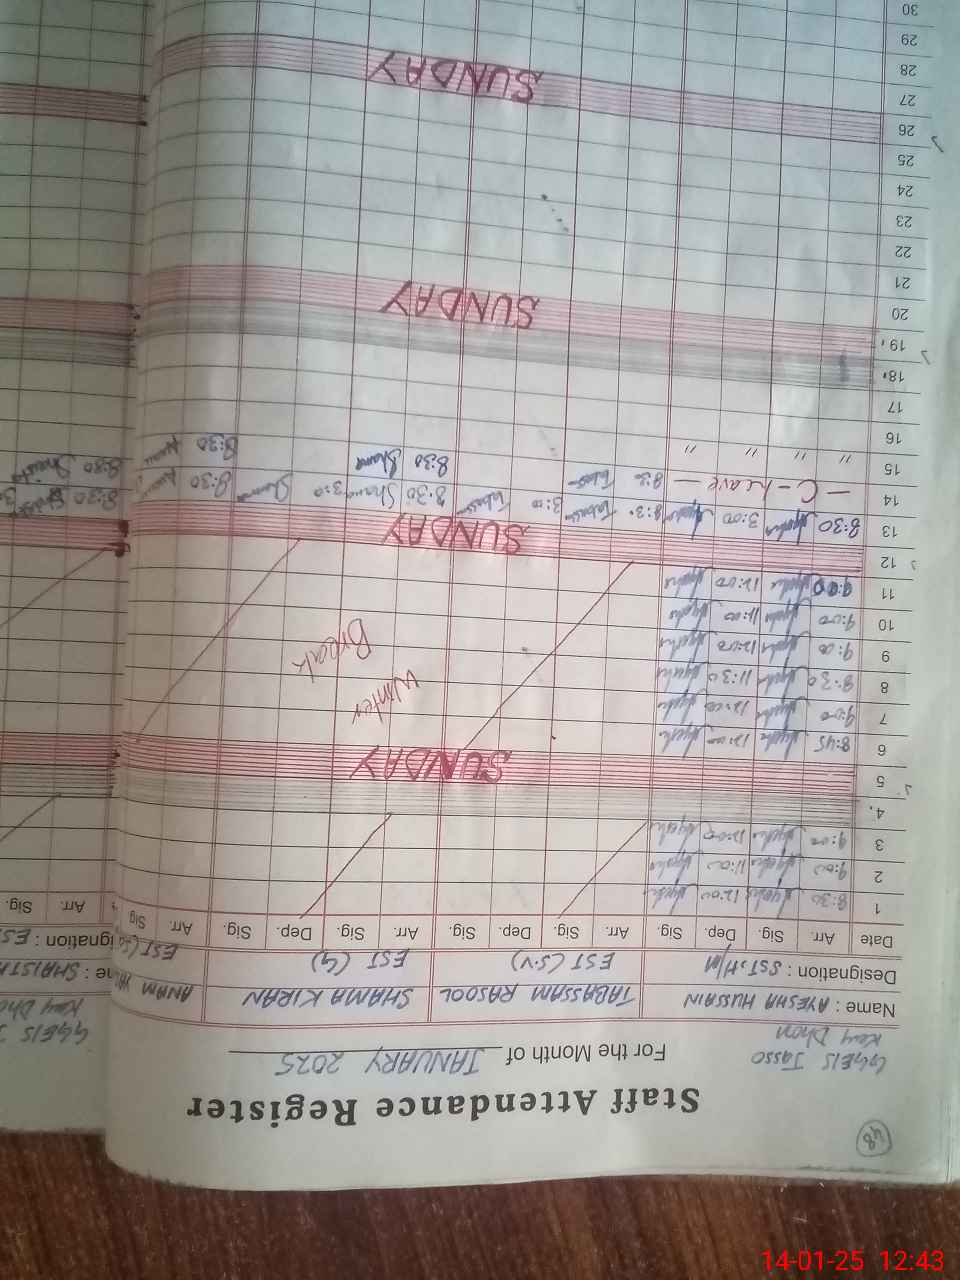 48
Staff Attendance Register
GGEIS Jasso
Kay Dhon
For the Month of JANUARY 2025
Name : AYESHA HUSSAIN TABASSAM RASOOL SHAMA KIRAN ANAM
Designation : SST, H/M EST (S.V) EST (G) EST
Date Arr. Sig. Dep. Sig. Arr. Sig. Dep. Sig. Arr. Sig. Dep. Sig. Arr. Sig
1 8:30 Ayesha 12:00 Ayesha
2 9:00 Ayesha 11:00 Ayesha
3 9:00 Ayesha 12:00 Ayesha
4
5 SUNDAY
6 8:45 Ayesha 12:00 Ayesha
7 9:00 Ayesha 12:00 Ayesha Winter
8 8:30 Ayesha 11:30 Ayesha Break
9 9:00 Ayesha 12:00 Ayesha
10 9:00 Ayesha 11:00 Ayesha
11 9:00 Ayesha 12:00 Ayesha
12 SUNDAY
13 8:30 Ayesha 3:00 Ayesha 8:30 Tabas 3:00 Tabas 8:30 Shama 3:00 Shama 8:30
14 — C - Leave — 8:30 Tabas 8:30 Shama 8:30
15 " " " "
16
17
18
19
20 SUNDAY
21
22
23
24
25
26
27 SUNDAY
28
29
30
GGEIS
Kay Dho
me : SHAISTA
ignation : ES
Arr. Sig.
8:30
8:30
14-01-25 12:43